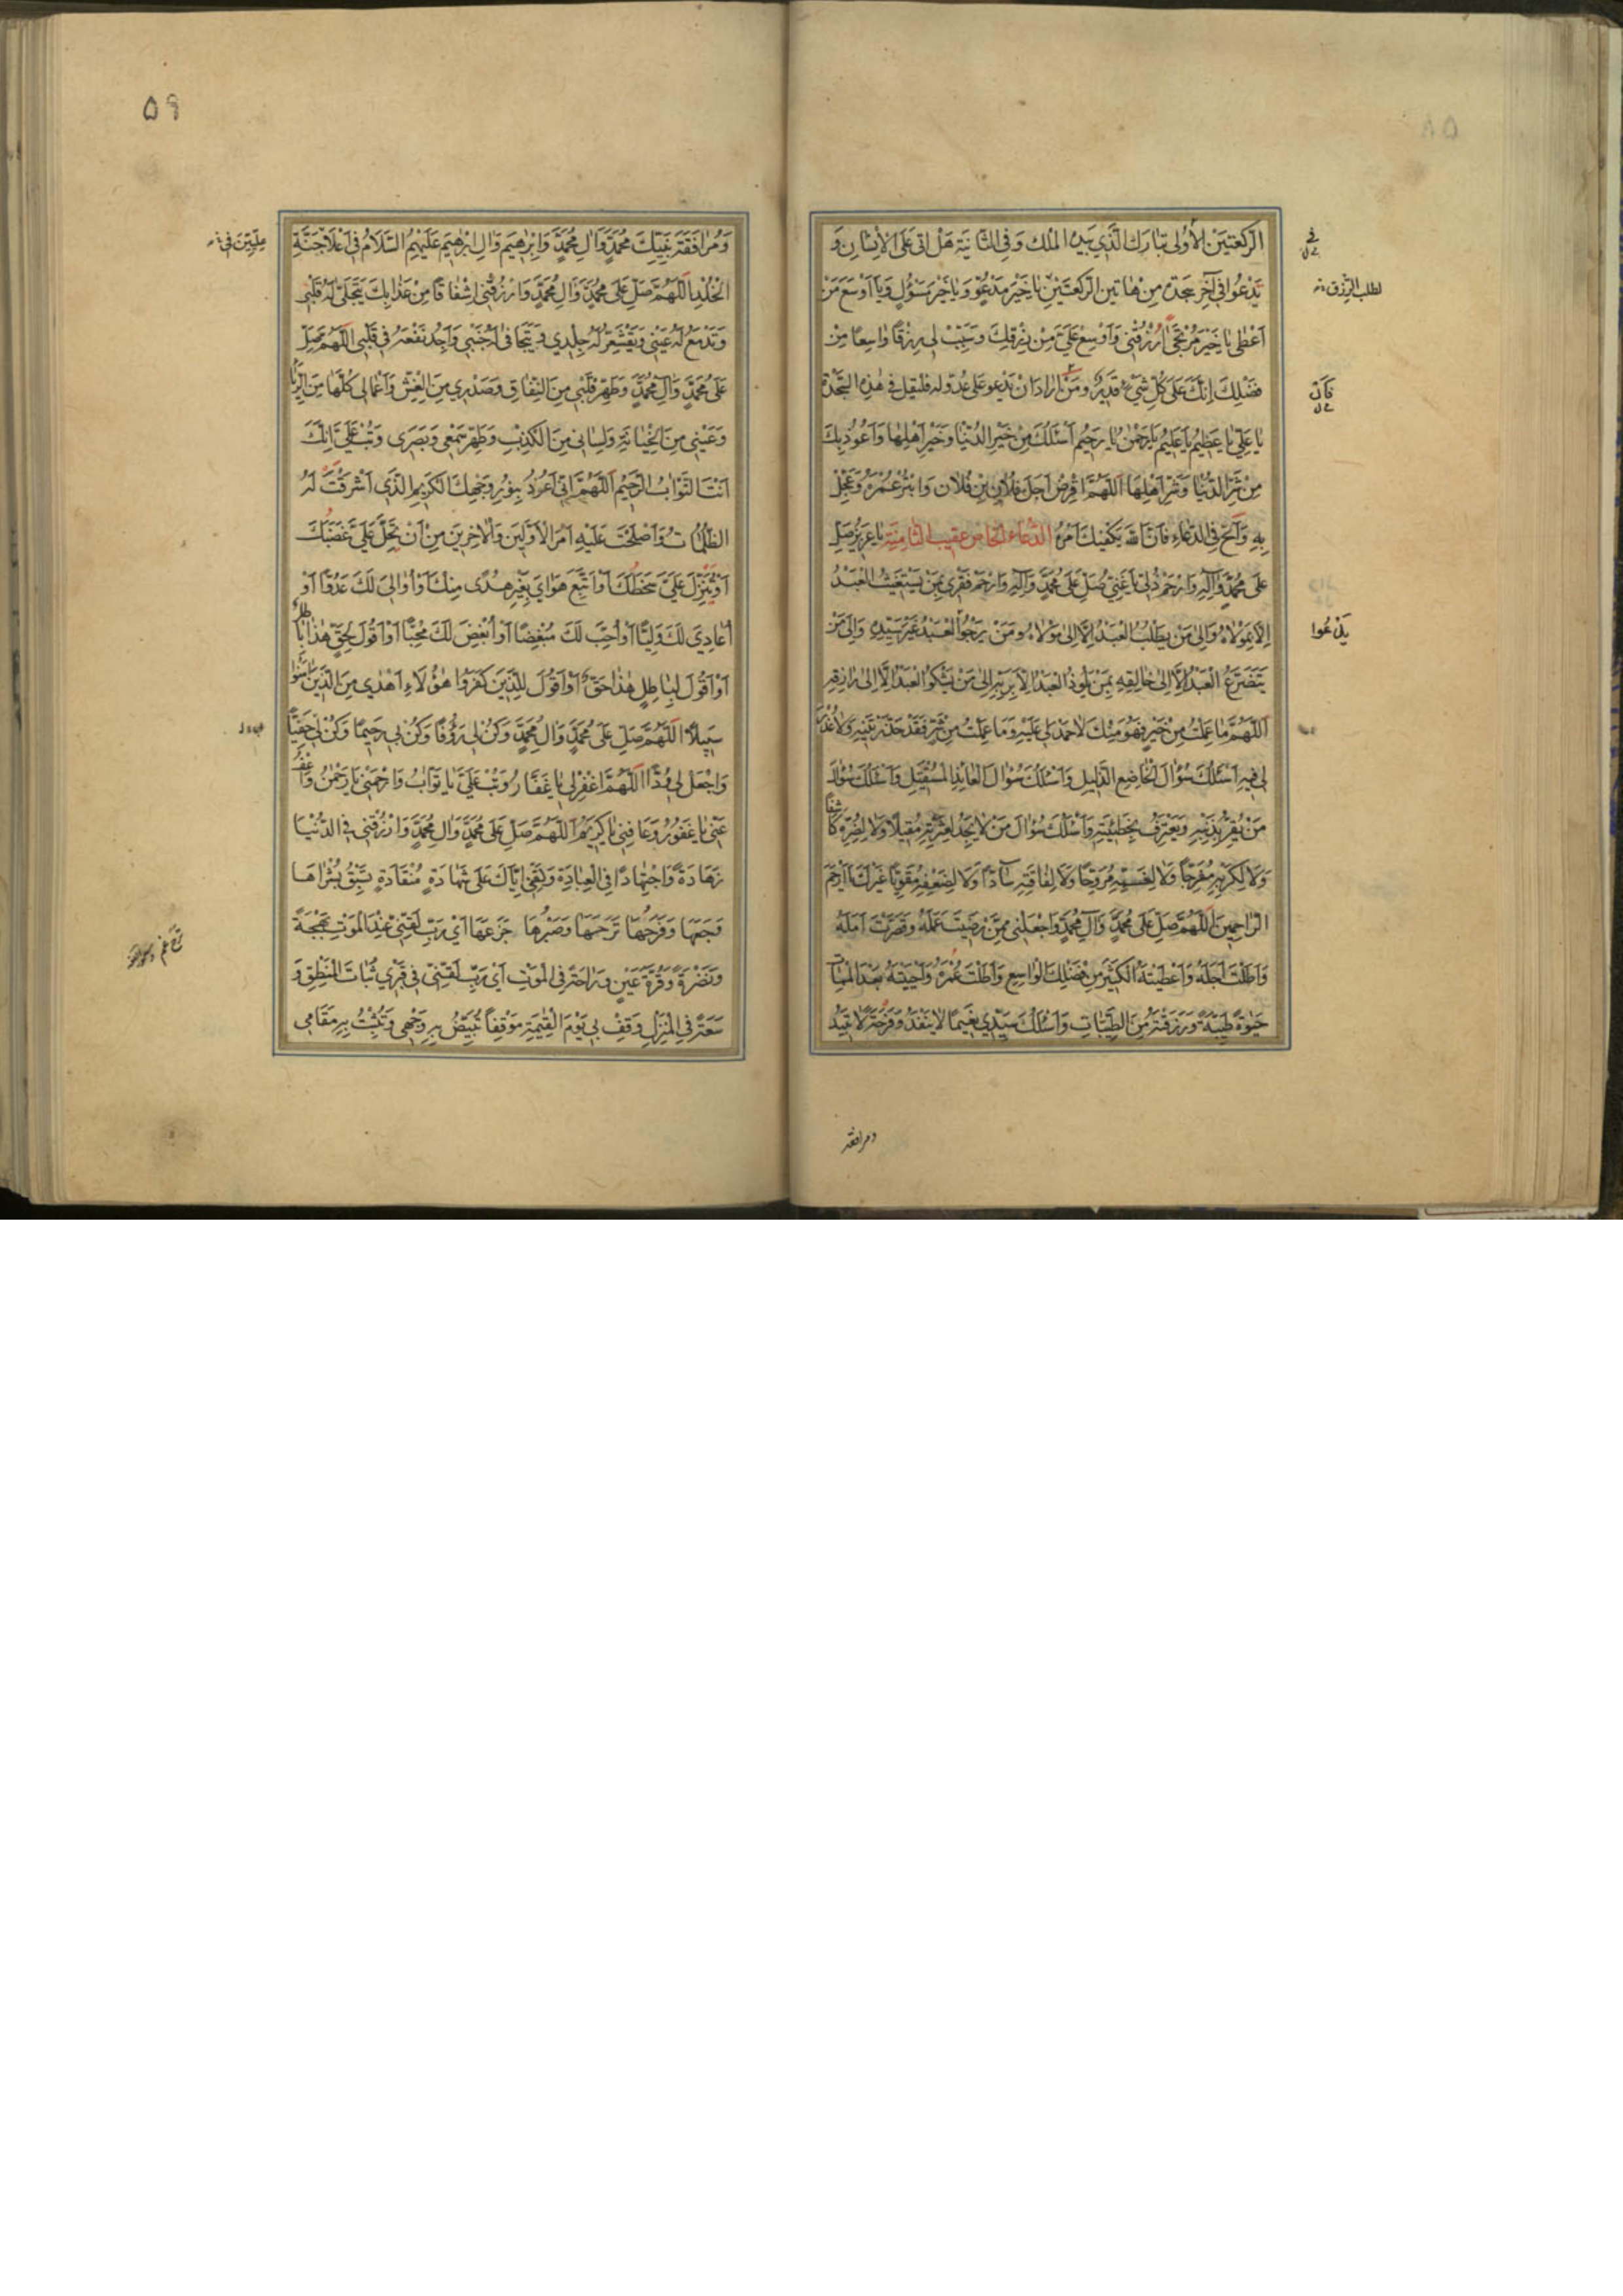 الرَّكْعَتَيْنِ الْأُولى تَبارَكَ الَّذي بِيَدِهِ الْمُلْكُ وَفِي الثَّانِيَةِ هَلْ اَتى عَلَى الْاِنْسانِ وَ
يَدْعُوا في آخِرِ سَجْدَةٍ مِنْ هاتَيْنِ الرَّكْعَتَيْنِ يا خَيْرَ مَدْعُوٍّ وَيا خَيْرَ مَسْؤُلٍ وَيا اَوْسَعَ مَنْ
اَعْطى يا خَيْرَ مُرْتَجًى اُرْزُقْني وَاَوْسِعْ عَلَيَّ مِنْ رِزْقِكَ وَسَبِّبْ لي رِزْقًا واسِعًا مِنْ
فَضْلِكَ اِنَّكَ عَلى كُلِّ شَيْءٍ قَديرٌ وَمَنْ اَرادَ اَنْ يَدْعُوَ عَلى عَدُوٍّ لَهُ فَلْيَقُلْ في هذِهِ السَّجْدَةِ
يا عَلِيُّ يا عَظيمُ يا عَليمُ يا رَحْمنُ يا رَحيمُ اَسْئَلُكَ مِنْ خَيْرِ الدُّنْيا وَخَيْرِ اَهْلِها وَاَعُوذُ بِكَ
مِنْ شَرِّ الدُّنْيا وَشَرِّ اَهْلِها اَللّهُمَّ اقْرِضْ اَجَلَ فُلانِ بْنِ فُلانٍ وَابْتُرْ عُمْرَهُ وَعَجِّلْ
بِهِ وَاَلِحَّ فِي الدُّعاءِ فَاِنَّ اللهَ يَكْفيكَ اَمْرَهُ الدُّعاءُ الخاصُّ عَقيبَ الثّامِنَةِ يا عَزيزُ صَلِّ
عَلى مُحَمَّدٍ وَآلِهِ وَارْحَمْ ذُلّي يا غَنِيُّ صَلِّ عَلى مُحَمَّدٍ وَآلِهِ وَارْحَمْ فَقْري بِمَنْ يَسْتَغيثُ الْعَبْدُ
اِلّا بِمَوْلاهُ وَاِلى مَنْ يَطْلُبُ الْعَبْدُ اِلّا اِلى مَوْلاهُ وَمَنْ يَرْجُوا الْعَبْدُ غَيْرَ سَيِّدِهِ وَاِلى مَنْ
يَتَضَرَّعُ الْعَبْدُ اِلّا اِلى خالِقِهِ بِمَنْ يَلُوذُ الْعَبْدُ اِلّا بِرَبِّهِ اِلى مَنْ يَشْكُوا الْعَبْدُ اِلّا اِلى رازِقِهِ
اَللّهُمَّ ما عَمِلْتُ مِنْ خَيْرٍ فَهُوَ مِنْكَ لا حَمْدَ لي عَلَيْهِ وَما عَمِلْتُ مِنْ شَرٍّ فَقَدْ حَذَّرْتَنيهِ وَلا عُذْرَ
لي فيهِ اَسْئَلُكَ سُؤالَ الْخاضِعِ الذَّليلِ وَاَسْئَلُكَ سُؤالَ الْعائِذِ الْمُسْتَقيلِ وَاَسْئَلُكَ سُؤالَ
مَنْ يُقِرُّ بِذَنْبِهِ وَيَعْتَرِفُ بِخَطيئَتِهِ وَاَسْئَلُكَ سُؤالَ مَنْ لا يَجِدُ لِعَثْرَتِهِ مُقيلًا وَلا لِضُرِّهِ كاشِفًا
وَلا لِكَرْبِهِ مُفَرِّجًا وَلا لِغَمِّهِ مُرَوِّحًا وَلا لِفاقَتِهِ سادًّا وَلا لِضَعْفِهِ مُقَوِّيًا غَيْرَكَ يا اَرْحَمَ
الرّاحِمينَ اَللّهُمَّ صَلِّ عَلى مُحَمَّدٍ وَآلِ مُحَمَّدٍ وَاجْعَلْني مِمَّنْ رَضيتَ عَمَلَهُ وَقَصَّرْتَ اَمَلَهُ
وَاَطَلْتَ اَجَلَهُ وَاَعْطَيْتَهُ الْكَثيرَ مِنْ فَضْلِكَ الْواسِعِ وَاَطَلْتَ عُمْرَهُ وَاَحْيَيْتَهُ بَعْدَ الْمَماتِ
حَيوةً طَيِّبَةً وَرَزَقْتَهُ مِنَ الطَّيِّباتِ وَاَسْئَلُكَ سَيِّدي نَعيمًا لا يَنْفَدُ وَفَرْحَةً لا تَبيدُ
لطلب الرزق
يدعوا
ومرافقة
٥٩
وَمُرافَقَةَ نَبِيِّكَ مُحَمَّدٍ وَآلِ مُحَمَّدٍ وَاِبْرهيمَ وَآلِ اِبْرهيمَ عَلَيْهِمُ السَّلامُ في اَعْلا جَنَّةِ
الْخُلْدِ اَللّهُمَّ صَلِّ عَلى مُحَمَّدٍ وَآلِ مُحَمَّدٍ وَارْزُقْني اِشْفاقًا مِنْ عَذابِكَ يَتَجَلّى لَهُ قَلْبي
وَتَدْمَعُ لَهُ عَيْني وَيَقْشَعِرُّ لَهُ جِلْدي وَيَتَجافى لَهُ جَنْبي وَاَجِدُ نَفْعَهُ في قَلْبي اَللّهُمَّ صَلِّ
عَلى مُحَمَّدٍ وَآلِ مُحَمَّدٍ وَطَهِّرْ قَلْبي مِنَ النِّفاقِ وَصَدْري مِنَ الْغِشِّ وَاَعْمالي كُلَّها مِنَ الرِّياءِ
وَعَيْني مِنَ الْخِيانَةِ وَلِساني مِنَ الْكَذِبِ وَطَهِّرْ سَمْعي وَبَصَري وَتُبْ عَلَيَّ اِنَّكَ
اَنْتَ التَّوّابُ الرَّحيمُ اَللّهُمَّ اِنّي اَعُوذُ بِنُورِ وَجْهِكَ الْكَريمِ الَّذي اَشْرَقَتْ لَهُ
الظُّلُماتُ وَاَصْلَحْتَ عَلَيْهِ اَمْرَ الْاَوَّلينَ وَالْآخِرينَ مِنْ اَنْ يَحِلَّ عَلَيَّ غَضَبُكَ
اَوْ يَنْزِلَ عَلَيَّ سَخَطُكَ اَوْ اَتَّبِعَ هَوايَ بِغَيْرِ هُدًى مِنْكَ اَوْ اُوالِيَ لَكَ عَدُوًّا اَوْ
اُعادِيَ لَكَ وَلِيًّا اَوْ اُحِبَّ لَكَ مُبْغِضًا اَوْ اُبْغِضَ لَكَ مُحِبًّا اَوْ اَقُولَ لِحَقٍّ هذا باطِلٌ
اَوْ اَقُولَ لِباطِلٍ هذا حَقٌّ اَوْ اَقُولَ لِلَّذينَ كَفَرُوا هؤُلاءِ اَهْدى مِنَ الَّذينَ آمَنُوا
سَبيلًا اَللّهُمَّ صَلِّ عَلى مُحَمَّدٍ وَآلِ مُحَمَّدٍ وَكُنْ لي رَؤُفًا وَكُنْ بي رَحيمًا وَكُنْ لي حَفِيًّا
وَاجْعَلْ لي وُدًّا اَللّهُمَّ اغْفِرْ لي يا غَفّارُ وَتُبْ عَلَيَّ يا تَوّابُ وَارْحَمْني يا رَحْمنُ وَاعْفُ
عَنّي يا غَفُورُ وَعافِني يا كَريمُ اَللّهُمَّ صَلِّ عَلى مُحَمَّدٍ وَآلِ مُحَمَّدٍ وَارْزُقْني فِي الدُّنْيا
زَهادَةً وَاجْتِهادًا فِي الْعِبادَةِ وَلَقِّني اِيّاكَ عَلى شَهادَةٍ مُنْقادَةٍ تَسْبِقُ بُشْراها
وَجَعَها وَفَرَحُها تَرَحَها وَصَبْرُها جَزَعَها اَيْ رَبِّ لَقِّني عِنْدَ الْمَوْتِ بَهْجَةً
وَنَضْرَةً وَقُرَّةَ عَيْنٍ وَراحَةً فِي الْمَوْتِ اَيْ رَبِّ لَقِّني في قَبْري ثَباتَ الْمَنْطِقِ وَ
سَعَةً فِي الْمَنْزِلِ وَقِفْ بي يَوْمَ الْقِيمَةِ مَوْقِفًا تُبَيِّضُ بِهِ وَجْهي وَتُثَبِّتُ بِهِ مَقامي